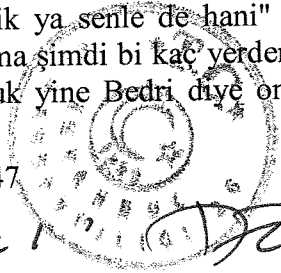 ik ya senle de hani"
ma şimdi bi kaç yerden
uk yine Bedri diye or
47